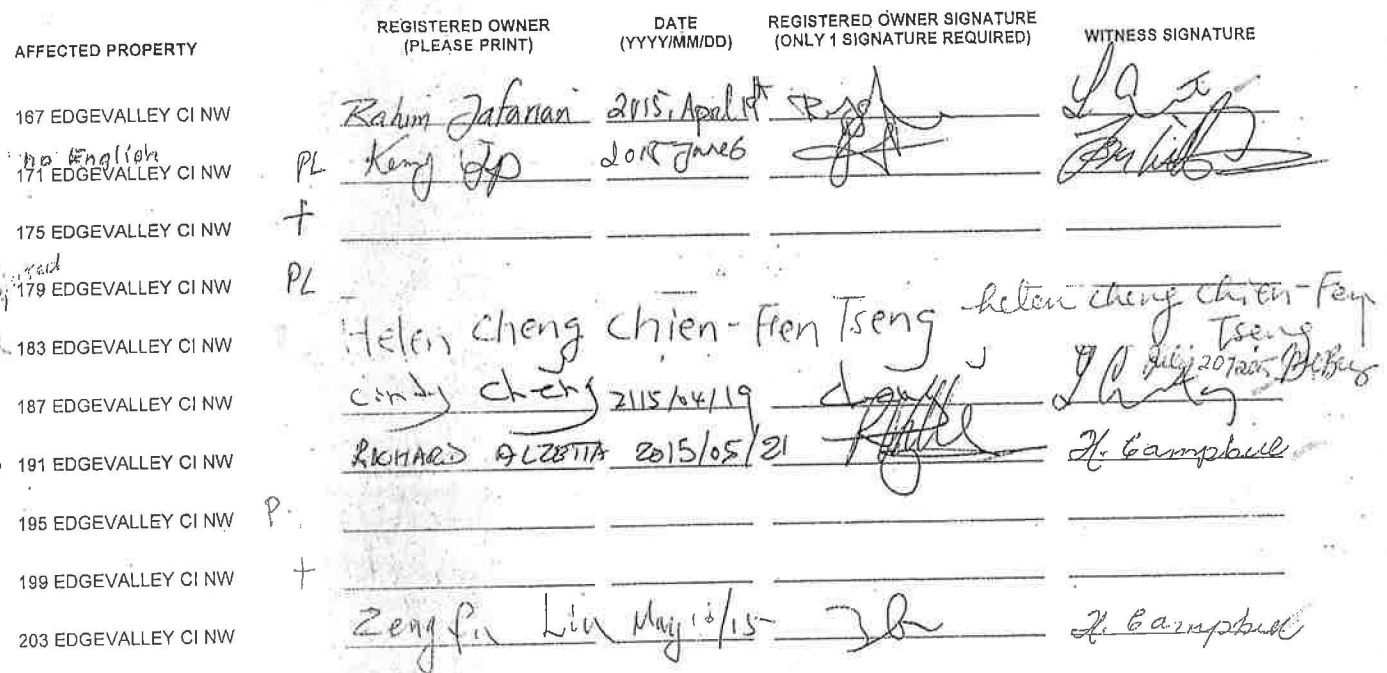 AFFECTED PROPERTY REGISTERED OWNER (PLEASE PRINT) DATE (YYYY/MM/DD) REGISTERED OWNER SIGNATURE (ONLY 1 SIGNATURE REQUIRED) WITNESS SIGNATURE
167 EDGEVALLEY CI NW Rahim Jafarian 2015, April 19th
no English
171 EDGEVALLEY CI NW PL Keng 2015 June 6
175 EDGEVALLEY CI NW +
179 EDGEVALLEY CI NW PL
183 EDGEVALLEY CI NW Helen Cheng Chien-Fen Tseng helen cheng Chien-Fen Tseng
187 EDGEVALLEY CI NW Cindy Cheng 2115/04/19 July 20/2015
191 EDGEVALLEY CI NW RICHARD ALZETTA 2015/05/21 H. Campbell
195 EDGEVALLEY CI NW P.
199 EDGEVALLEY CI NW +
203 EDGEVALLEY CI NW Zeng fu Lin May /15 H. Campbell